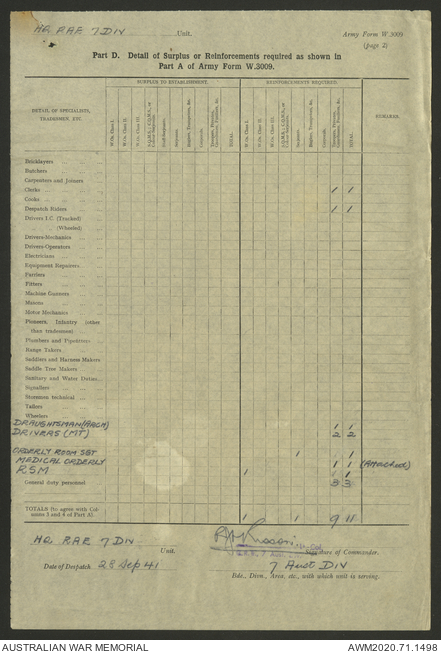 HQ RAE 7 DIV Unit.
Army Form W.3009
(page 2)
Part D. Detail of Surplus or Reinforcements required as shown in
Part A of Army Form W.3009.
DETAIL OF SPECIALISTS, TRADESMEN, ETC.
SURPLUS TO ESTABLISHMENT.
REINFORCEMENTS REQUIRED.
REMARKS.
W.Os. Class I.
W.Os. Class II.
W.Os. Class III.
Staff-Serjeants.
Serjeants.
Corporals.
TOTAL
W.Os. Class I.
W.Os. Class II.
W.Os. Class III.
Serjeants.
Corporals.
TOTAL
Bricklayers
Butchers
Carpenters and Joiners
Clerks 1 1
Cooks
Despatch Riders 1 1
Drivers I.C. (Tracked)
(Wheeled)
Drivers-Mechanics
Drivers-Operators
Electricians
Equipment Repairers
Farriers
Fitters
Machine Gunners
Masons
Motor Mechanics
Pioneers, Infantry (other
than tradesmen)
Plumbers and Pipefitters
Range Takers
Saddlers and Harness Makers
Saddle Tree Makers
Sanitary and Water Duties
Signallers
Storemen technical
Tailors
Wheelers
DRAUGHTSMAN (ARCH) 1 1
DRIVERS (MT) 2 2
ORDERLY ROOM SGT 1 1
MEDICAL ORDERLY 1 1 (Attached)
RSM 1 1
General duty personnel 3 3
TOTALS (to agree with Col-
umns 3 and 4 of Part A). 1 1 9 11
HQ RAE 7 DIV Unit.
Signature of Commander.
Date of Despatch 28 Sep 41
7 Aust DIV
Bde., Divn., Area, etc., with which unit is serving.
AUSTRALIAN WAR MEMORIAL
AWM2020.71.1498